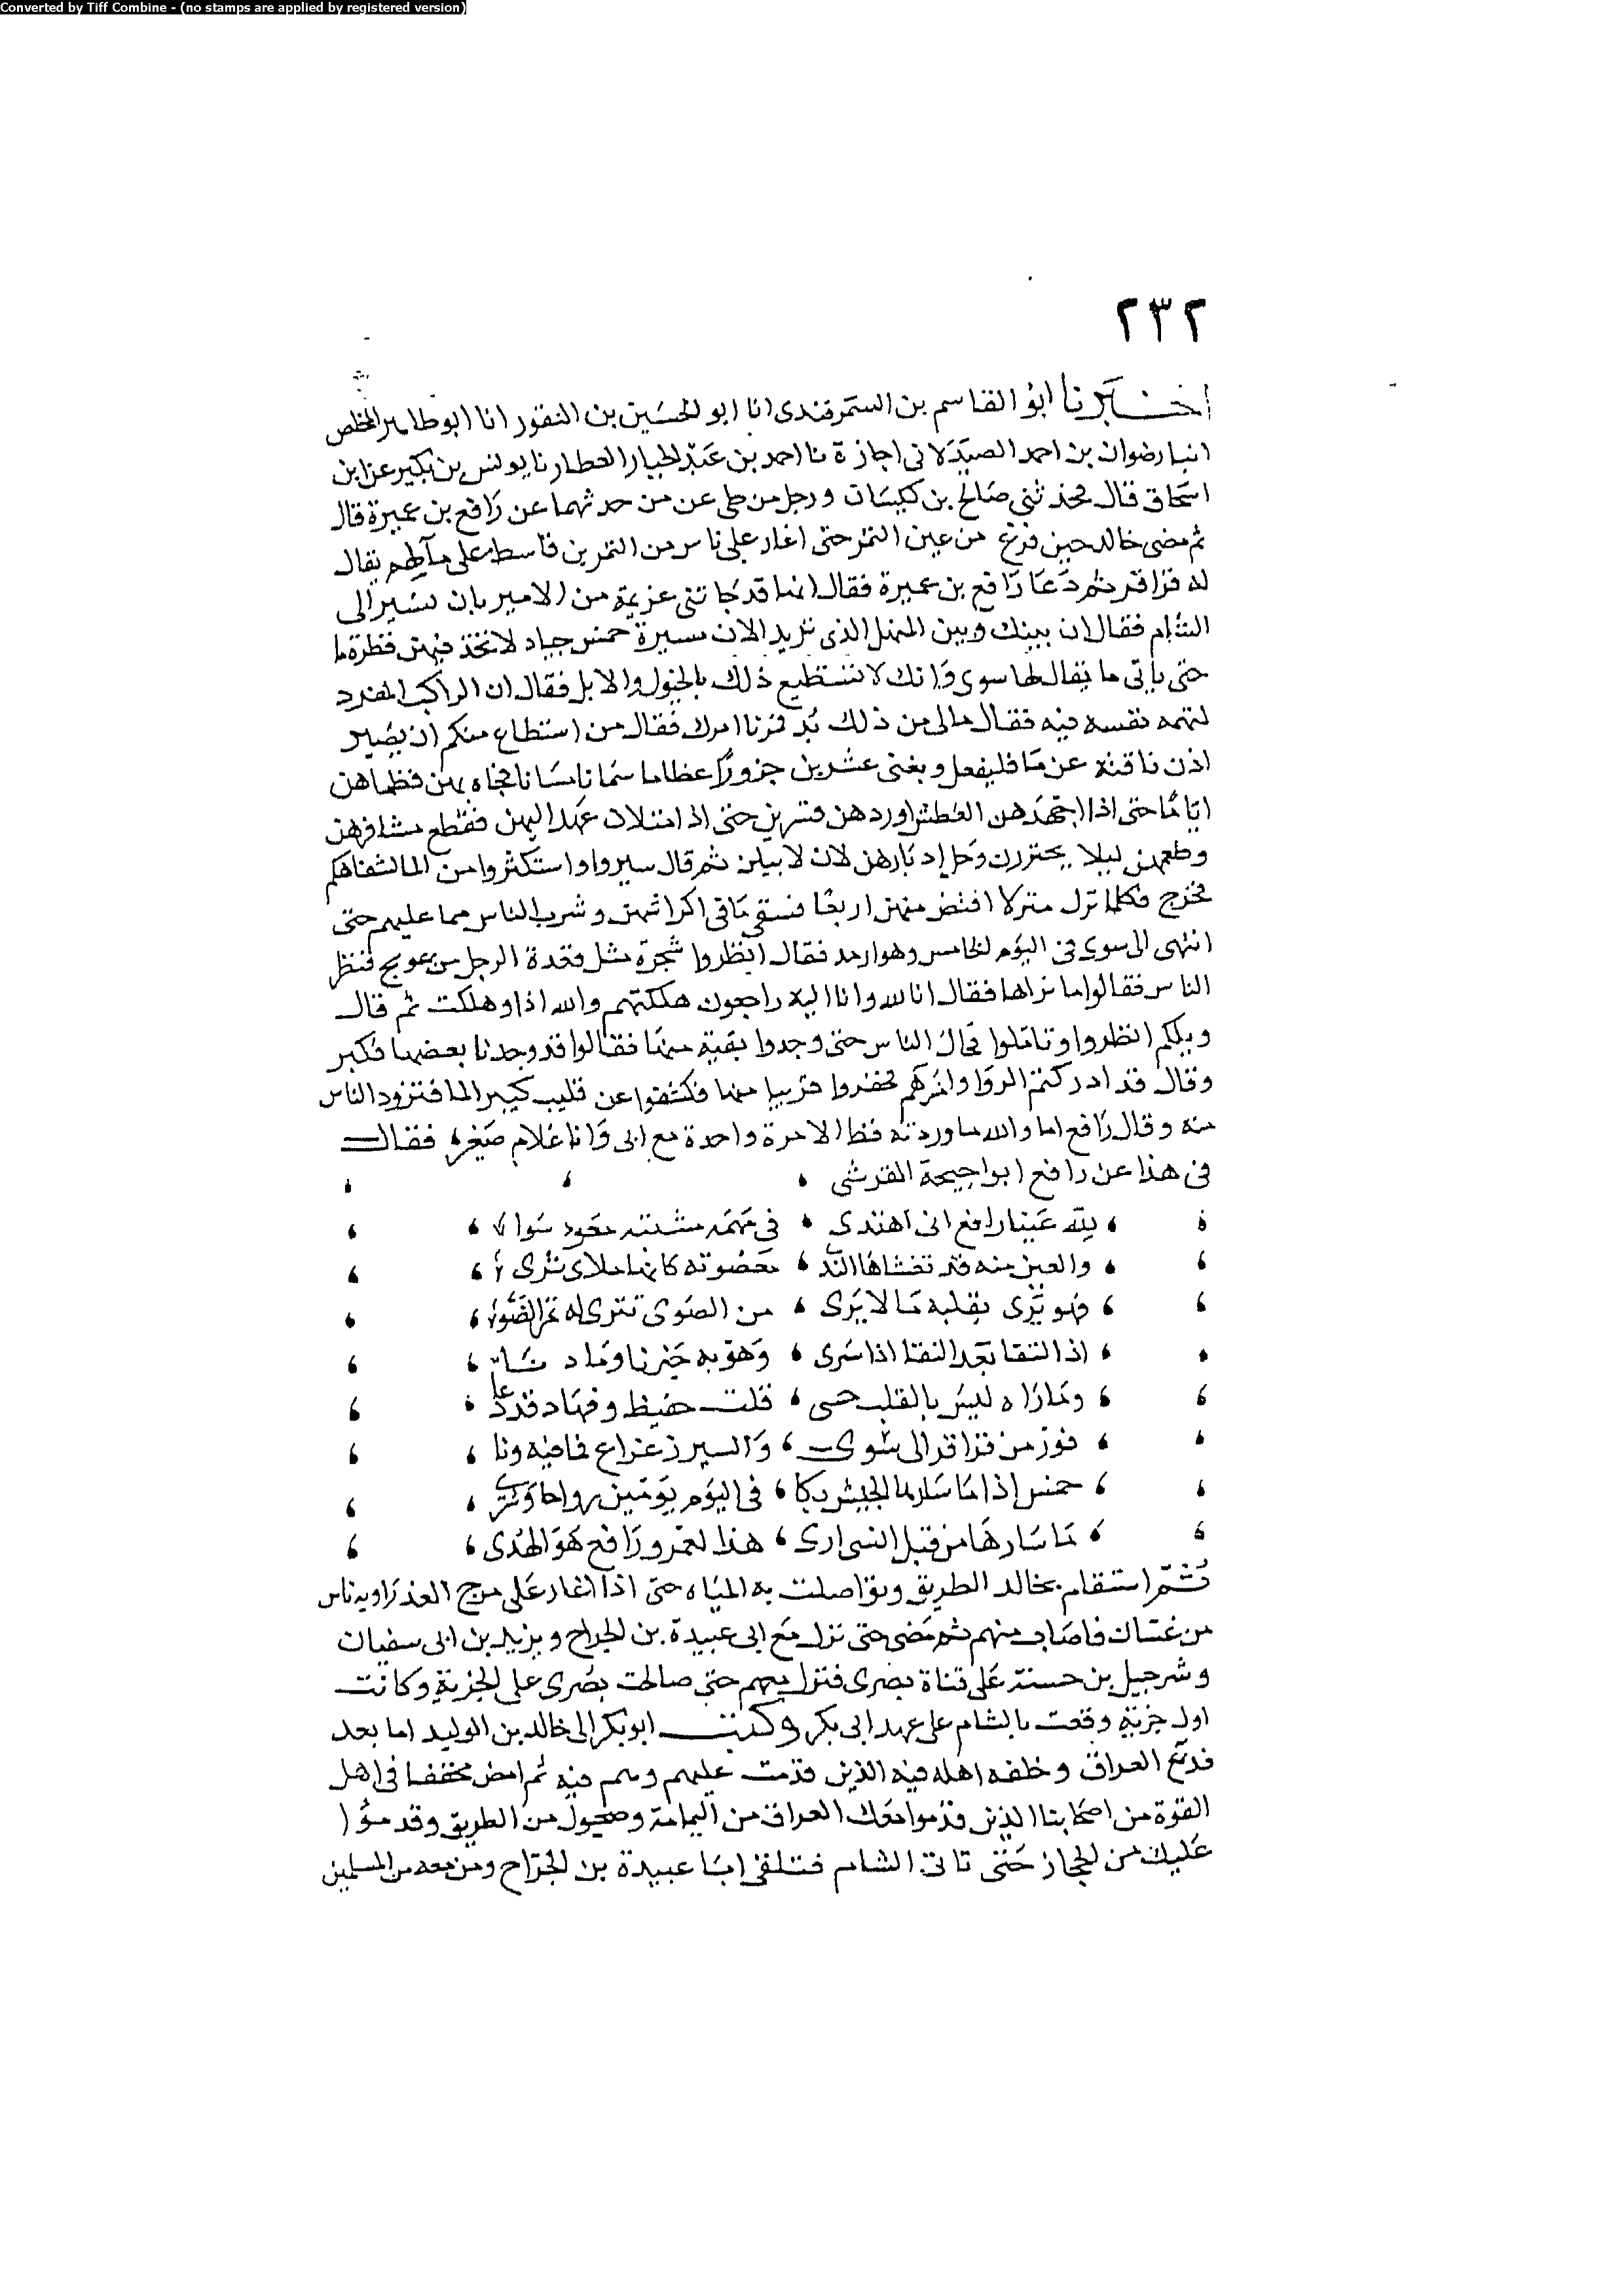 Converted by Tiff Combine - (no stamps are applied by registered version)
٢٣٢
اخبرنا ابو القاسم بن السمرقندى انا ابو الحسين بن النقور انا ابو طاهر المخلص
انبا رضوان بن احمد الصيدلانى اجازة نا احمد بن عبد الجبار العطار نا يونس بن بكير عن ابن
اسحاق قال فحدثنى صالح بن كيسان ورجل من طى عن من حدثهما عن رافع بن عميرة قال
ثم مضى خالد حين فرغ من عين التمر حتى اغار على ناس من النمر بن قاسط على مآ لهم يقال
له قراقر ثم دعا رافع بن عميرة فقال انها قد جاتنى عزيمة من الامير بان نسير الى
الشام فقال ان بينك وبين المنهل الذى تريد الان مسيرة خمس جياد لا تتخذ فيهن قطرة ما
حتى ياتى ما يقال لها سوى وانك لا تستطيع ذلك بالخيول والابل فقال ان الراكب المفرد
لتهمه نفسه فيه فقال مالى من ذلك بد فمرنا امرك فقال من استطاع منكم ان يصير
اذن ناقته عن ما فليفعل وبغنى عشرين جزورا عظاما سمانا مسانا فجاه بهن فظماهن
اياما حتى اذا اجهدهن العطش اوردهن فشربن حتى اذا امتلان عهد اليهن فقطع مشافرهن
وطعمهن ليلا يجتررن وحل ادبارهن لان لا يبلن ثم قال سيروا واستكثروا من الما لشفاهكم
فخرج فكلما نزل منزلا افتض منهن اربعا فسقى ماقى اكراشهن وشرب الناس مما عليهم حتى
انتهى الى سوى فى اليوم الخامس وهو ارمد فقال انظروا شجرة مثل قعدة الرجل من عوسج فنظر
الناس فقالوا ما نراها فقال انا لله وانا اليه راجعون هلكتم والله اذا وهلكت ثم قال
ويلكم انظروا وتاملوا فجال الناس حتى وجدوا بقية منها فقالوا قد وجدنا بعضها فكبر
وقال قد ادركتم الروا وامركم فحفروا قريبا منها فكشفوا عن قليب كبير الما فتزود الناس
منه وقال رافع اما والله ما وردته قط الا مرة واحدة مع ابى وانا غلام صغير فقال
فى هذا عن رافع ابو اجيحة القرشى
لله عينا رافع انى اهتدى ، فى مهمه مشتبه سوا
والعين منه قد تغشاها ، معصوبة كانها ملاى ثرى
فهو يرى بقلبه ما لا يرى ، من الصوى تترى له ثم الصوى
اذا النقا بعد النقا اذا سرى ، وهو به خبرنا وما
وما راه ليس بالقلب حسى ، قلت حفيظ وفهاد قد
فوز من قراقر الى سوى ، والسير زعزاع فما فيه ونا
خمس اذا ما سارها الجيش بكا ، فى اليوم يومين رواحا وسرى
ما سارها من قبل انسى ارى ، هذا لعمرو رافع هو الهدى
ثم استقام بخالد الطريق وتواصلت به المياه حتى اذا اغار على مرج العذراويه ناس
من غسان فاصاب منهم ثم مضى حتى نزل مع ابى عبيدة بن الجراح ويزيد بن ابى سفيان
وشرجيل بن حسنة على قناة بصرى فنزل بهم حتى صالحت بصرى على الجزية وكانت
اول جزية وقعت بالشام على عهد ابى بكر وكتب ابو بكر الى خالد بن الوليد اما بعد
فدع العراق وخلفه اهله فيه الذين قدمت عليهم وهم فيه ثم امض مخففا فى اهل
القوة من اصحابنا الذين قدموا معك العراق من اليمامة وصحبوك من الطريق وقدموا
عليك من الحجاز حتى تاتى الشام فتلقى ابا عبيدة بن الجراح ومن معه من المسلمين